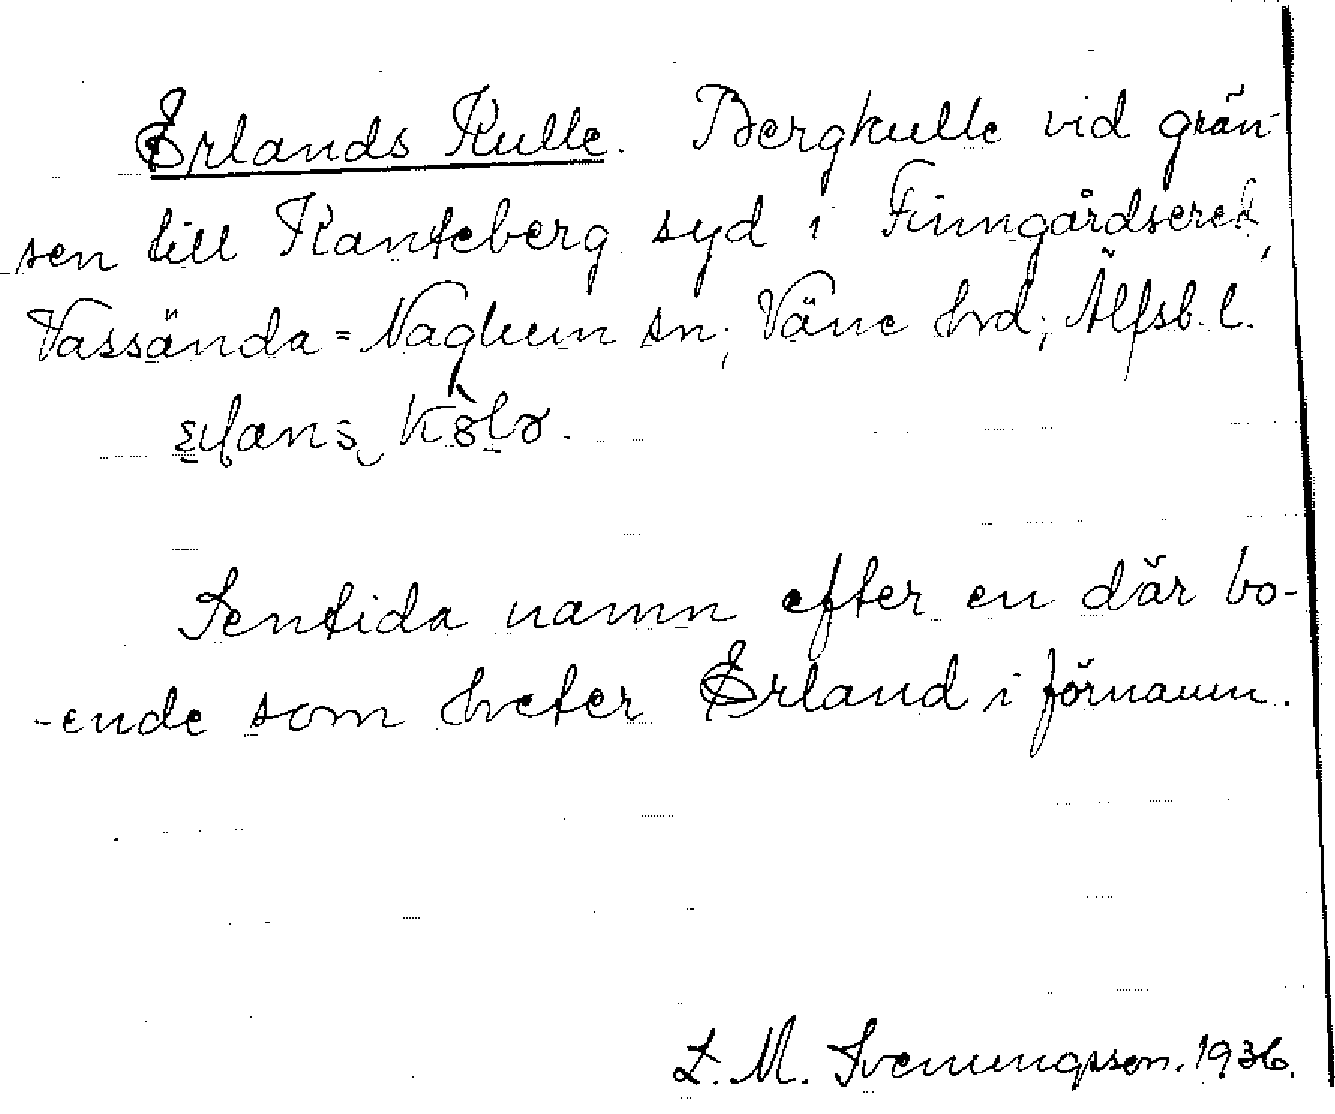 Erlands Kulle. Bergkulle vid grän-
sen till Kanteberg syd i Finngärdseret,
Vassända=Naglum sn; Väne hrd; Älfsb. l.

Sentida namn efter en där bo-
-ende som heter Erland i förnamn.
L. M. Svenungsson. 1936.